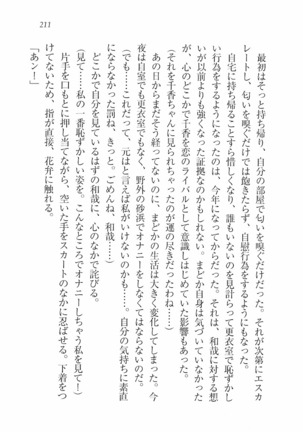 211
最初はそっと持ち帰り、自分の部屋で匂いを嗅ぐだけだった。それが次第にエスカ
レートし、匂いを嗅ぐだけでは飽きたらず、自慰行為をするようにもなった。
自宅に持ち帰ることすら惜しくなり、誰もいないのを見計らって更衣室で恥ずかし
い行為をするようになったのは、今年になってからだった。それは、和哉に対する想
いが以前よりも強くなった証拠なのかもしれない。まどか自身は気づいていなかった
が、心のどこかで千香を恋のライバルとして意識しはじめていた影響もあった。
(それを千香ちゃんに見られちゃったのが運の尽きだったわね……)
あの日からまだそう経ってないのに、まどかの生活は大きく変化してしまった。今
夜は自室でも更衣室でもなく、野外の砂浜でオナニーをしなくてはならないのだ。
(でも……これだって、元はと言えば私がいけないのかも……。自分の気持ちに素直
になれなかった罰ね、きっと。ごめんね、和哉……)
どこかで自分を見ているはずの和哉に、心のなかで詫びる。
(見て……私の一番恥ずかしい姿を。こんなところでオナニーしちゃう私を見て!)
片手を口もとに押し当てながら、空いた手をスカートのなかに忍ばせる。下着をつ
けてないため、指が直接、花弁に触れる。
「あンー」